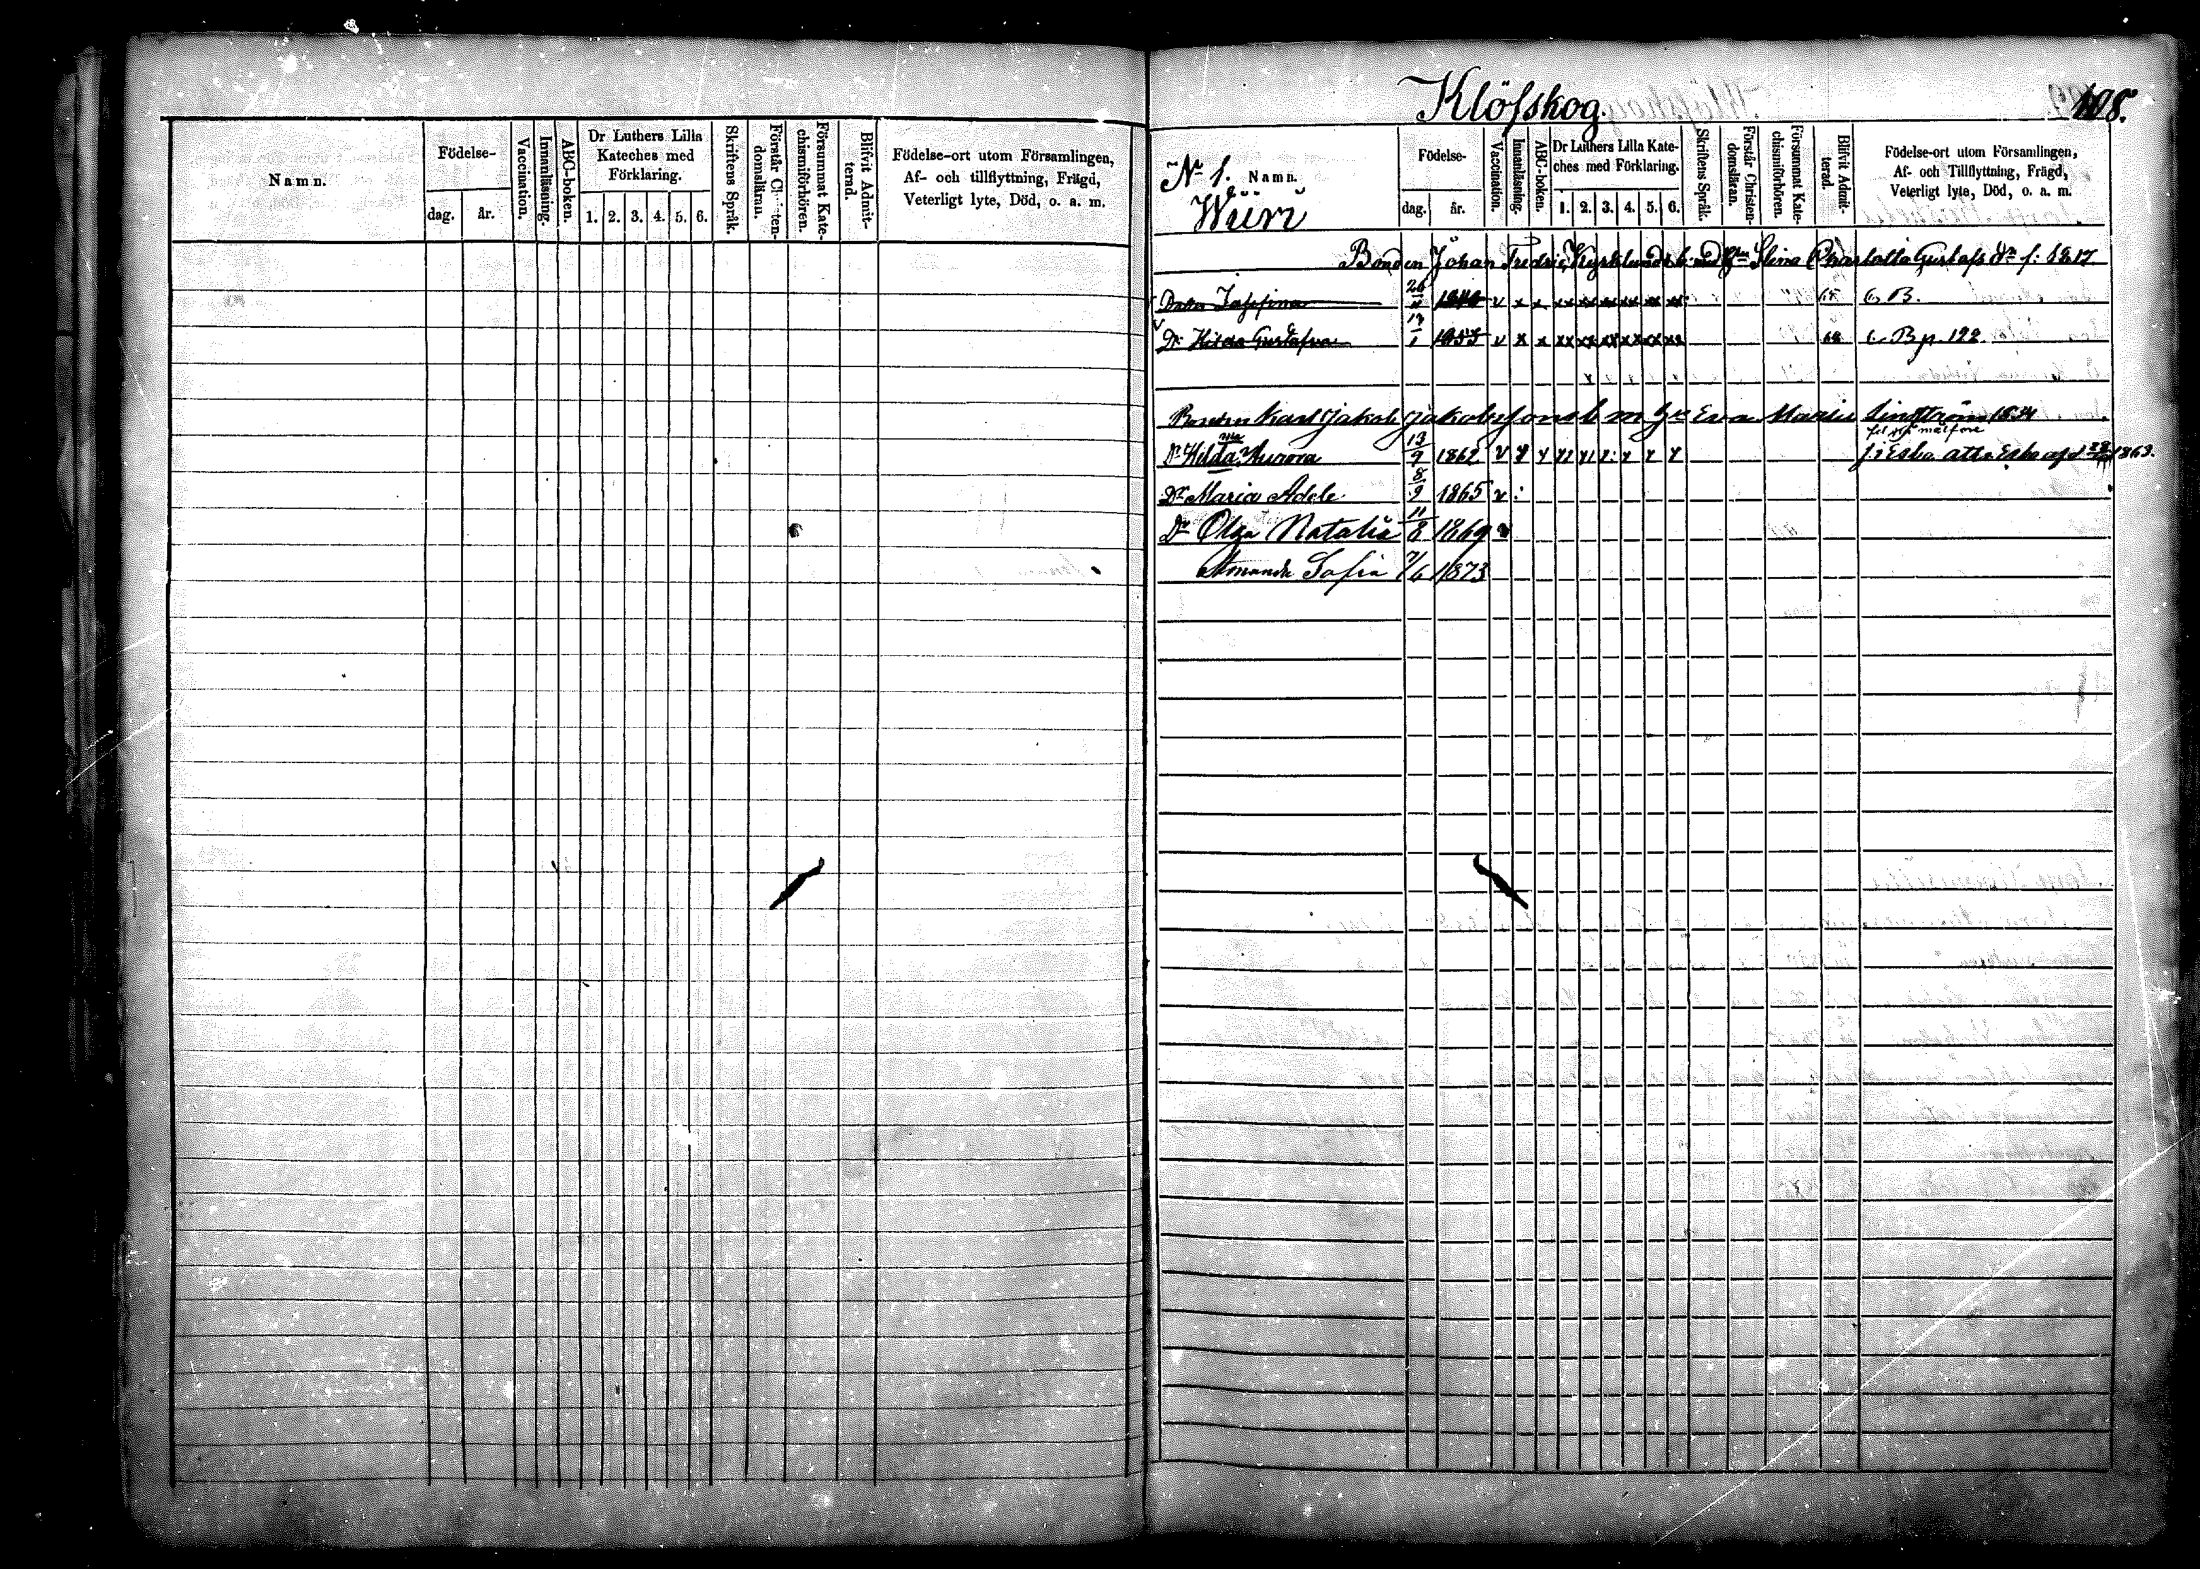 Namn.
Födelse-
dag.
år.
Vaccination.
Innanläsning.
ABC-boken.
Dr Luthers Lilla
Kateches med
Förklaring.
1. 2. 3. 4. 5. 6.
Skriftens Språk.
Förstår Christen-
domsläran.
Försummat Kate-
chismiförhören.
Blifvit Admit-
terad.
Födelse-ort utom Församlingen,
Af- och tillflyttning, Frägd,
Veterligt lyte, Död, o. a. m.
Klöfskog.
108.
No 1. Namn.
Födelse-
dag.
år.
Vaccination.
Innanläsning.
ABC-boken.
Dr Luthers Lilla Kate-
ches med Förklaring.
1. 2. 3. 4. 5. 6.
Skriftens Språk.
Förstår Christen-
domsläran.
Försummat Kate-
chismiförhören.
Blifvit Admit-
terad.
Födelse-ort utom Församlingen,
Af- och Tillflyttning, Frägd,
Veterligt lyte, Död, o. a. m.
Bonden Johan Fredric Charlotta Gustafs dr f. 1817
26 v x x xx xx xx xx xx C. B.
Dr Hilda Gustafva 13/1 1853 v x x xx xx xx xx xx 68 C. B p. 128
Bonden Karl Jakob Jakobsson Eva Maria Lindström
Dr Hilda Aurora 13/9 1862 v 1863.
Dr Maria Adele 8/9 1865 v
Dr Olga Natalia 11/8 1869 v
Amanda Sofia 7/6 1873